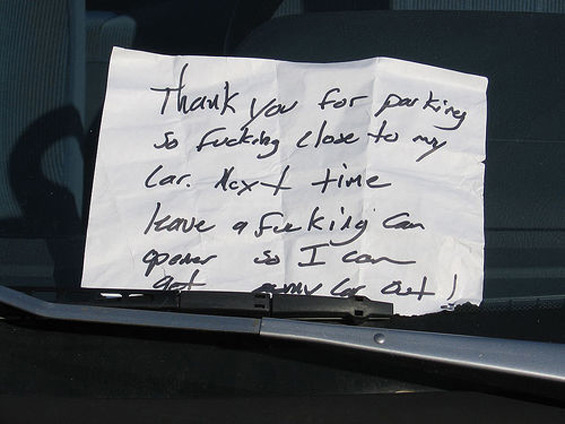 Thank you for parking
so fucking close to my
Car. Next time
leave a fucking can
opener so I can
get my Car out!